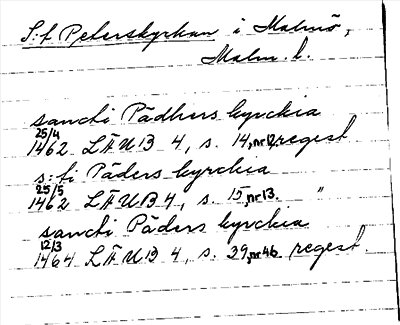 S:t Peterskyrkan i Malmö,
Malm. l.
sancti Pädhers kyrckia
25/4 1462 LÄUB 4, s. 14, nr 12, regest
s:ti Päders kyrckia
25/5 1462 LÄUB 4, s. 15, nr 13. "
sancti Päders kyrckia
12/3 1464 LÄUB 4, s. 39, nr 46 regest.